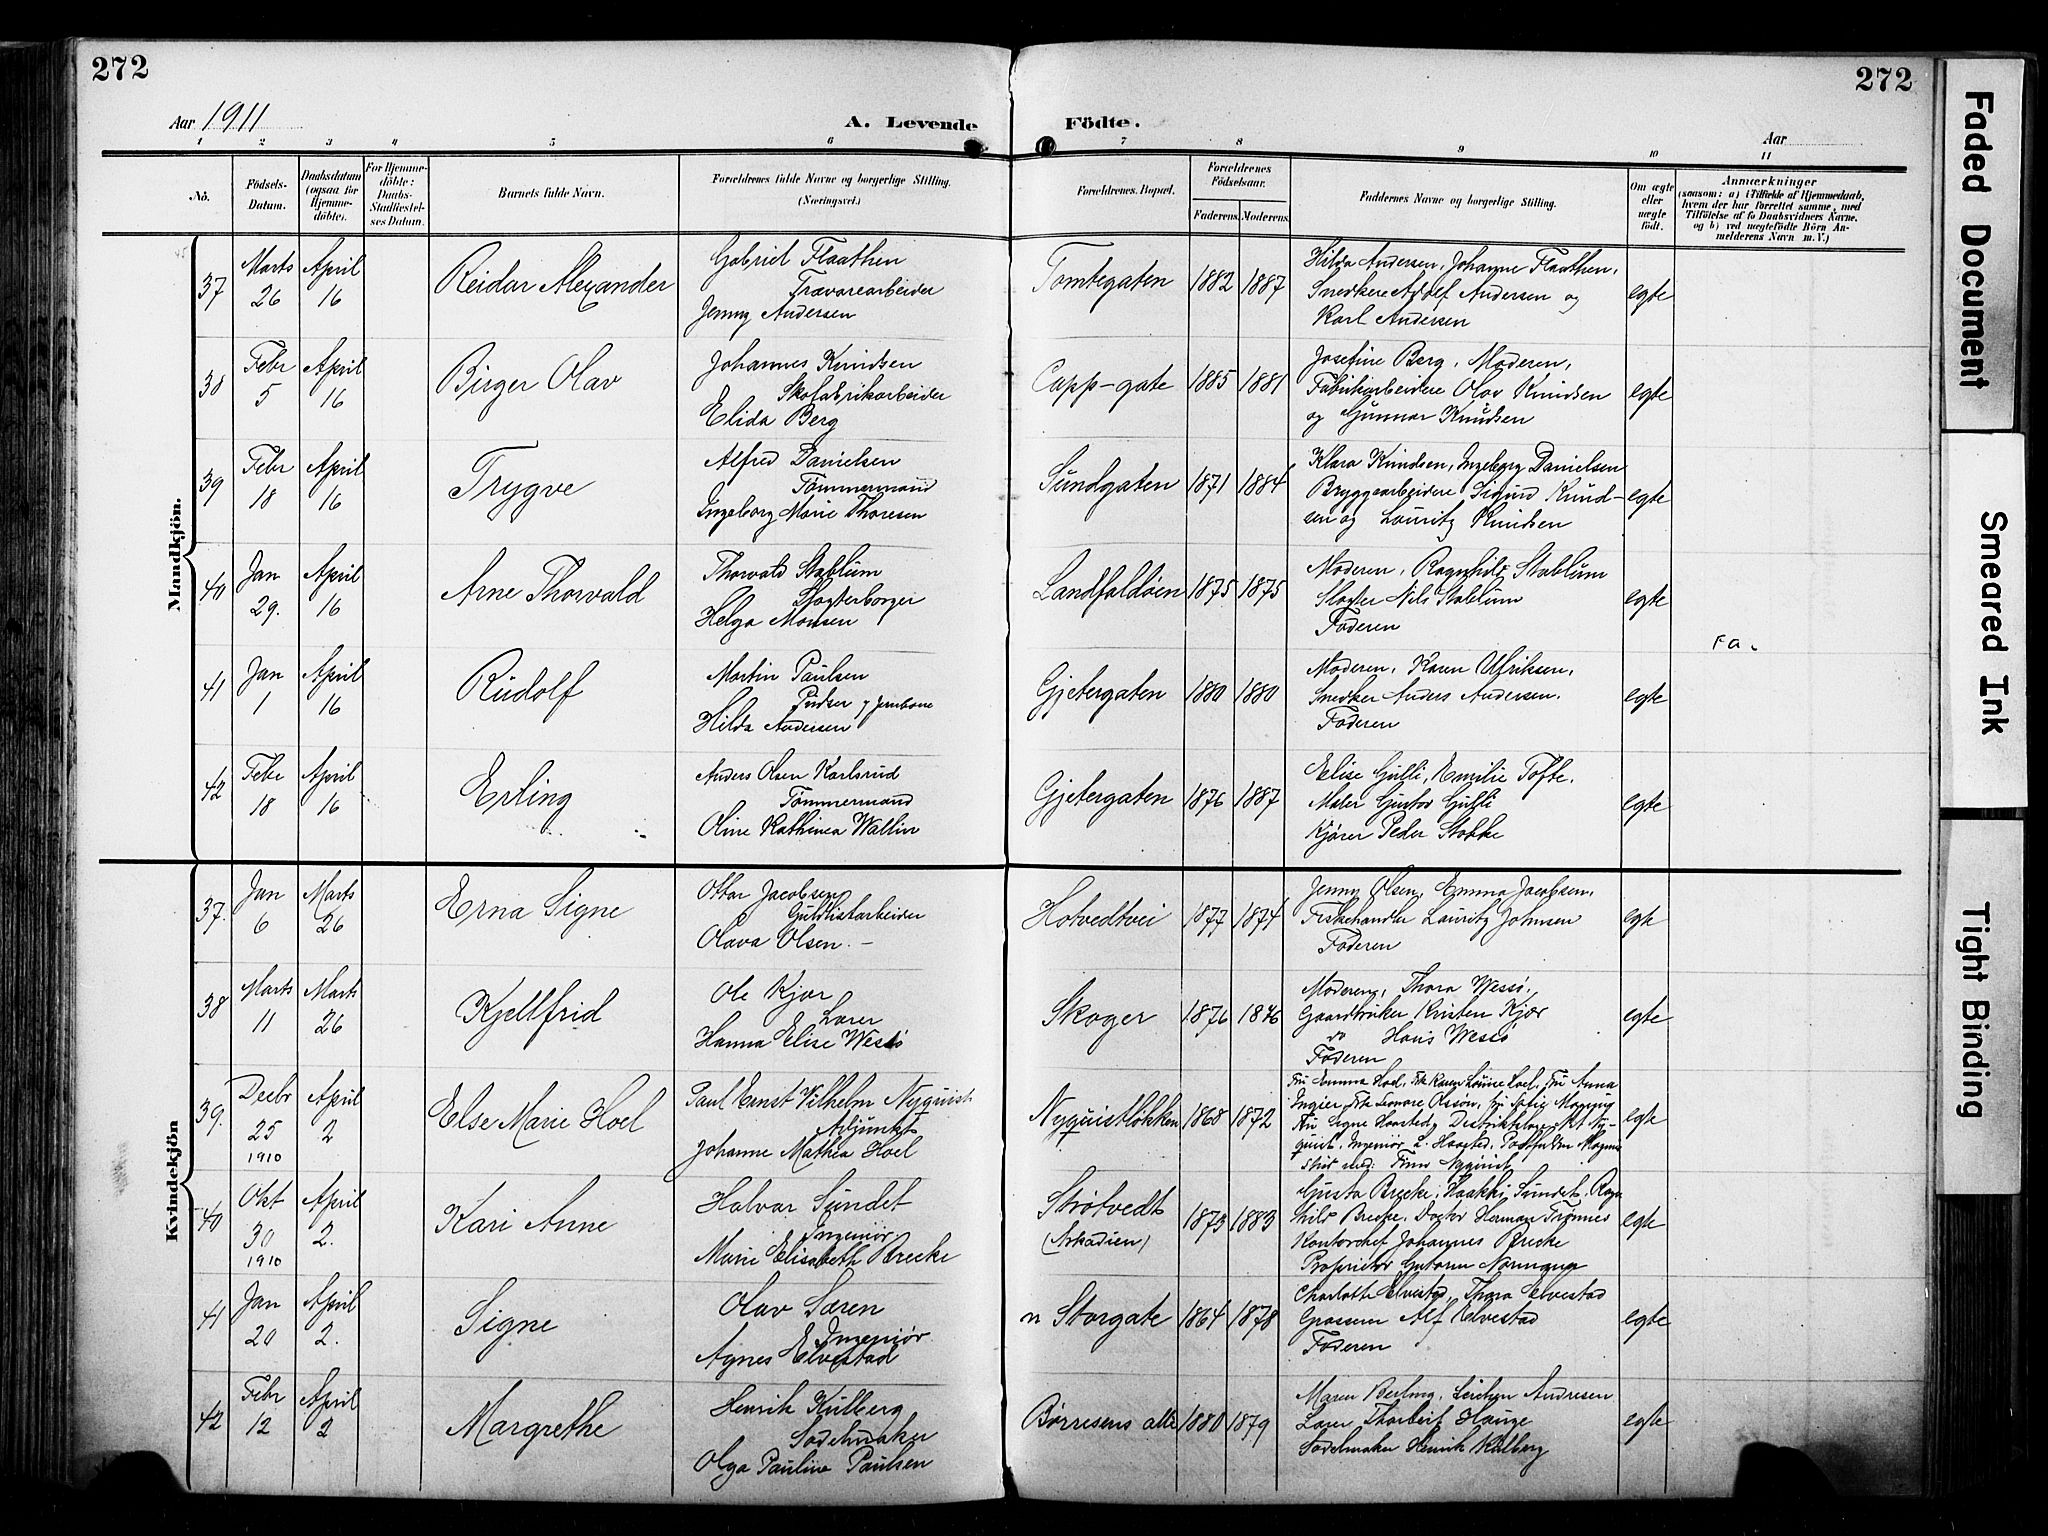 272
272
Aar 1911
A. Levende Födte.
Aar
1 2 3 4 5 6 7 8 9 10 11
No.
Födsels-
Datum.
Daabsdatum
(ogsaa for
Hjemme-
döbte).
For Hjemme-
döbte:
Daabs-
Stadfæstel-
ses Datum.
Barnets fulde Navn.
Forældrenes fulde Navne og borgerlige Stilling.
(Næringsvei.)
Forældrenes Bopæl.
Forældrenes
Födselsaar.
Faderens. Moderens.
Faddernes Navne og borgerlige Stilling.
Om ægte
eller
uægte
födt.
Anmærkninger
(saasom: a) i Tilfælde af Hjemmedaab,
hvem der har forrettet samme, med
Tilföielse af to Daabsvidners Navne,
og b) ved uægtefödte Börn An-
melderens Navn m. V.)
Mandkjön.
37
Marts
26
April
16
Reidar Alexander
Gabriel Flaathen
Trævarearbeider
Jenny Andersen
Tomtegaten
1882
1887
Hilda Andersen, Johanne Flaathen,
Snedkere Adolf Andersen og
Karl Andersen
egte
38
Febr
5
April
16
Birger Olav
Johannes Knudsen
Skofabrikarbeider
Elida Berg
Capp-gate
1885
1881
Josefine Berg, Moderen,
Fabrikarbeidere Olav Knudsen
og Gunnar Knudsen
egte
39
Febr
18
April
16
Trygve
Alfred Danielsen
Tømmermand
Ingeborg Marie Thoresen
Sundgaten
1871
1884
Klara Knudsen, Ingeborg Danielsen
Bryggearbeidere Sigurd Knud-
sen og Lauritz Knudsen
egte
40
Jan
29.
April
16
Arne Thorvald
Thorvald Stablum
Slagterborger
Helga Monsen
Landfaldøen
1875
1875
Moderen, Ragnhild Stablum
Slagter Nils Stablum
Faderen
egte
Fa.
41
Jan
1
April
16
Rudolf
Martin Paulsen
Pudser v Jernbane
Hilda Andersen
Gjetergaten
1880
1880
Moderen, Karen Ulriksen,
Snedker Anders Andersen.
Faderen
egte
42
Febr
18
April
16
Erling
Anders Olsen Karlsrud
Tømmermand
Oline Kathinea Wallin
Gjetergaten
1876
1887
Elise Gulli, Emilie Tofte,
Maler Gustav Gulli
Kjører Peder Stokke
egte
Kvindekjön
37.
Jan
6
Marts
26
Erna Signe
Ottar Jacobsen
Guldlistarbeider
Olava Olsen. -
Hotvedtvei
1877
1874
Jenny Olsen, Emma Jacobsen,
Fiskehandler Lauritz Johnsen
Faderen
egte
38
Marts
11
Marts
26
Kjellfrid
Ole Kjær
Lærer
Hanna Elise Wessø
Skoger
1876
1876
Moderen, Thora Wessø,
Gaardbruker Kristen Kjær
do Hans Wessø
Faderen
egte
39.
Decbr
25
1910
April
2
Else Marie Hoel
Paul Ernst Vilhelm Nyquist
Adjunkt
Johanne Mathea Hoel
Nyquistløkken
1868
1872
Fru Emma Hoel, Frk Karen Louise Hoel, Fru Anna
Ingier,
Fru Signe Haarsted, Distriktslæge
quist, Ingeniør L. Haarsted,
Stud med: Finn Nyquist
egte
40
Okt
30
1910
April
2.
Kari Anne
Halvar Sundet
Ingeniør
Marie Elisabeth Brecke
Strøtvedt
(Arkadien)
1873
1883
Gusta Brecke, Haakki Sundet, Ragn
hild Brecke, Doctor Herman Frønnes
Kontorchef Johannes Brecke
Proprietær Guttorm Normann
egte
41
Jan
20
April
2.
Signe
Olav Særen
Ingeniør
Agnes Elvestad
n Storgate
1864
1878
Charlotte Elvestad, Thora Elvestad
Grosserer Alf Elvestad
Faderen
egte
42
Febr
12
April
2
Margrethe
Henrik Kulberg
Sadelmaker
Olga Pauline Paulsen
Børresens alle
1880
1879
Maren Berling, Andresen
Lærer Thorleif Hauge
Sadelmaker Henrik Kulberg
egte
Faded Document
Smeared Ink
Tight Binding